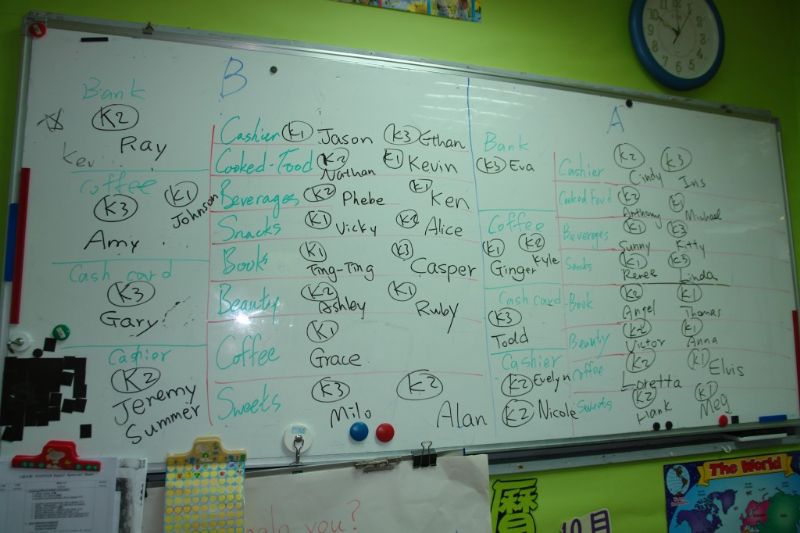 B
Bank
K2
Ray
Kev
Coffee
K3 K1
Johnson
Amy
Cash card
K3
Gary
Cashier
K2
Jeremy
Summer
Cashier K1 Jason K3 Ethan
Cooked-Food K2 Nathan K1 Kevin
Beverages K2 Phebe K1 Ken
Snacks K1 Vicky K2 Alice
Books K1 Ting-Ting K3 Casper
Beauty K2 Ashley K1 Ruby
Coffee K1 Grace
Sweets K3 Milo K2 Alan
A
Bank
K3 Eva
Coffee
K1 K2
Ginger Kyle
Cash card
K3
Todd
Cashier
K2 Evelyn
K2 Nicole
Cashier K2 Cindy K3 Ins
Cooked Food K3 Anthony K1 Michael
Beverages K1 Sunny K3 Kitty
Snacks K1 Renee K3 Linda
Book K2 Angel K1 Thomas
Beauty K2 Victor K1 Anna
Coffee K2 Loretta K1 Elvis
Sweets K2 Hank K1 Meg
help you?
曆
10月
The World